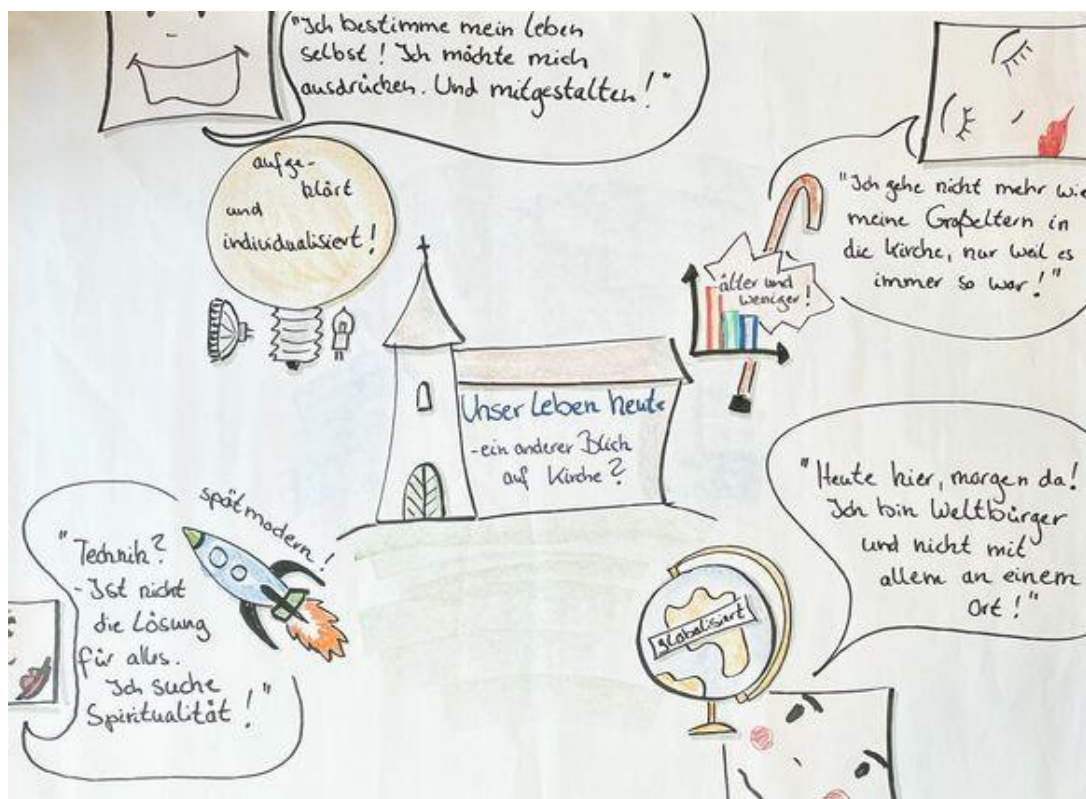 "Ich bestimme mein Leben
selbst! Ich möchte mich
ausdrücken. Und mitgestalten!"
aufge-
klärt
und
individualisiert!
"Ich gehe nicht mehr wie
meine Großeltern in
die Kirche, nur weil es
immer so war!"
älter und
weniger!
Unser Leben heute
-ein anderer Blick
auf Kirche?
spätmodern!
"Technik?
-Ist nicht
die Lösung
für alles.
Ich suche
Spiritualität!"
"Heute hier, morgen da!
Ich bin Weltbürger
und nicht mit
allem an einem
Ort!"
globalisiert